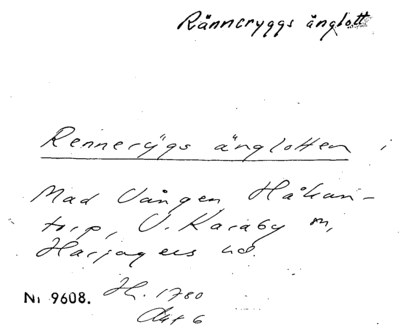 Ränneryggs änglott
Rennerÿgs änglotten i
Mad Vången Håkan-
torp, V. Karaby sn,
Harjagers hd.
Nr 9608. Hh. 1780
Akt 6